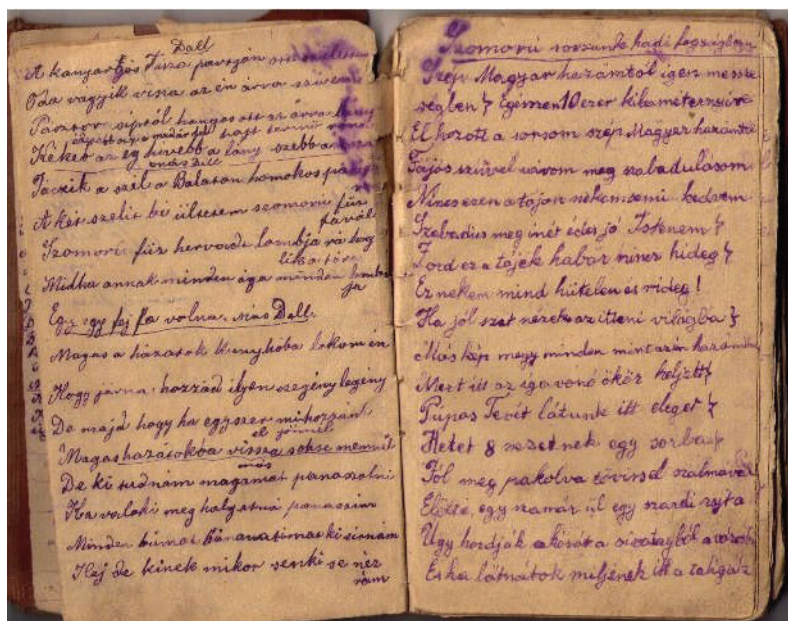 Dall
A kanyargós Tisza partján ott születtem
Oda vágyik vissza az én árva szívem
Pásztor síptól hangos ott az árva
Kéket az ég hivebb a lány szebb a
más Dall
Fúczik a szél a Balaton homokos
A két szelit bé ültetem szomorú fűz
fával
Szomorú fűz hervadt lombja rá
Midha annak minden ága minden lombja
Egy egy fej fa volna. más Dall.
Magas a házatok Kunyhóba lakom én
Hogy járna hozzád ilyen szegény legény
De majd hogy ha egyszer mihozzán
el jönnél
Magas házatokba vissza sohse mennél
más
De ki tudnám magamat panaszolni
Ha valaki meg halgatná panaszim
Minden búmat bánatimat ki sirnám
Haj de kinek mikor senki se néz
rám
Szomorú sorzunk hadi fogságban
Szép Magyar hazámtól igen messze
végben Egemen 10 ezer kilaméternyire
El hozott a sorsom szép Magyar
Fájós szívvel várom meg szabadulásom
Nincs ezen a tájon nekem semi kedvem
Szabadits meg inét édes jó Istenem
Zord ez a tájék habár nincs hideg
Ez nekem mind hütelen és rideg!
Ha jól szet nézek az itteni világba
Más kép megy minden mint azén
Mert itt az iga vonó ökör helyett
Púpos Tevét látunk itt eleget
Hetet 8 vezetnek egy sorba
Jól meg pakolva tövissel szalmával
Elöttë, egy szamár ül egy szardi rajta
Úgy hordják a kórót a sivatagból a
És ha látnátok miljének itt a taligák